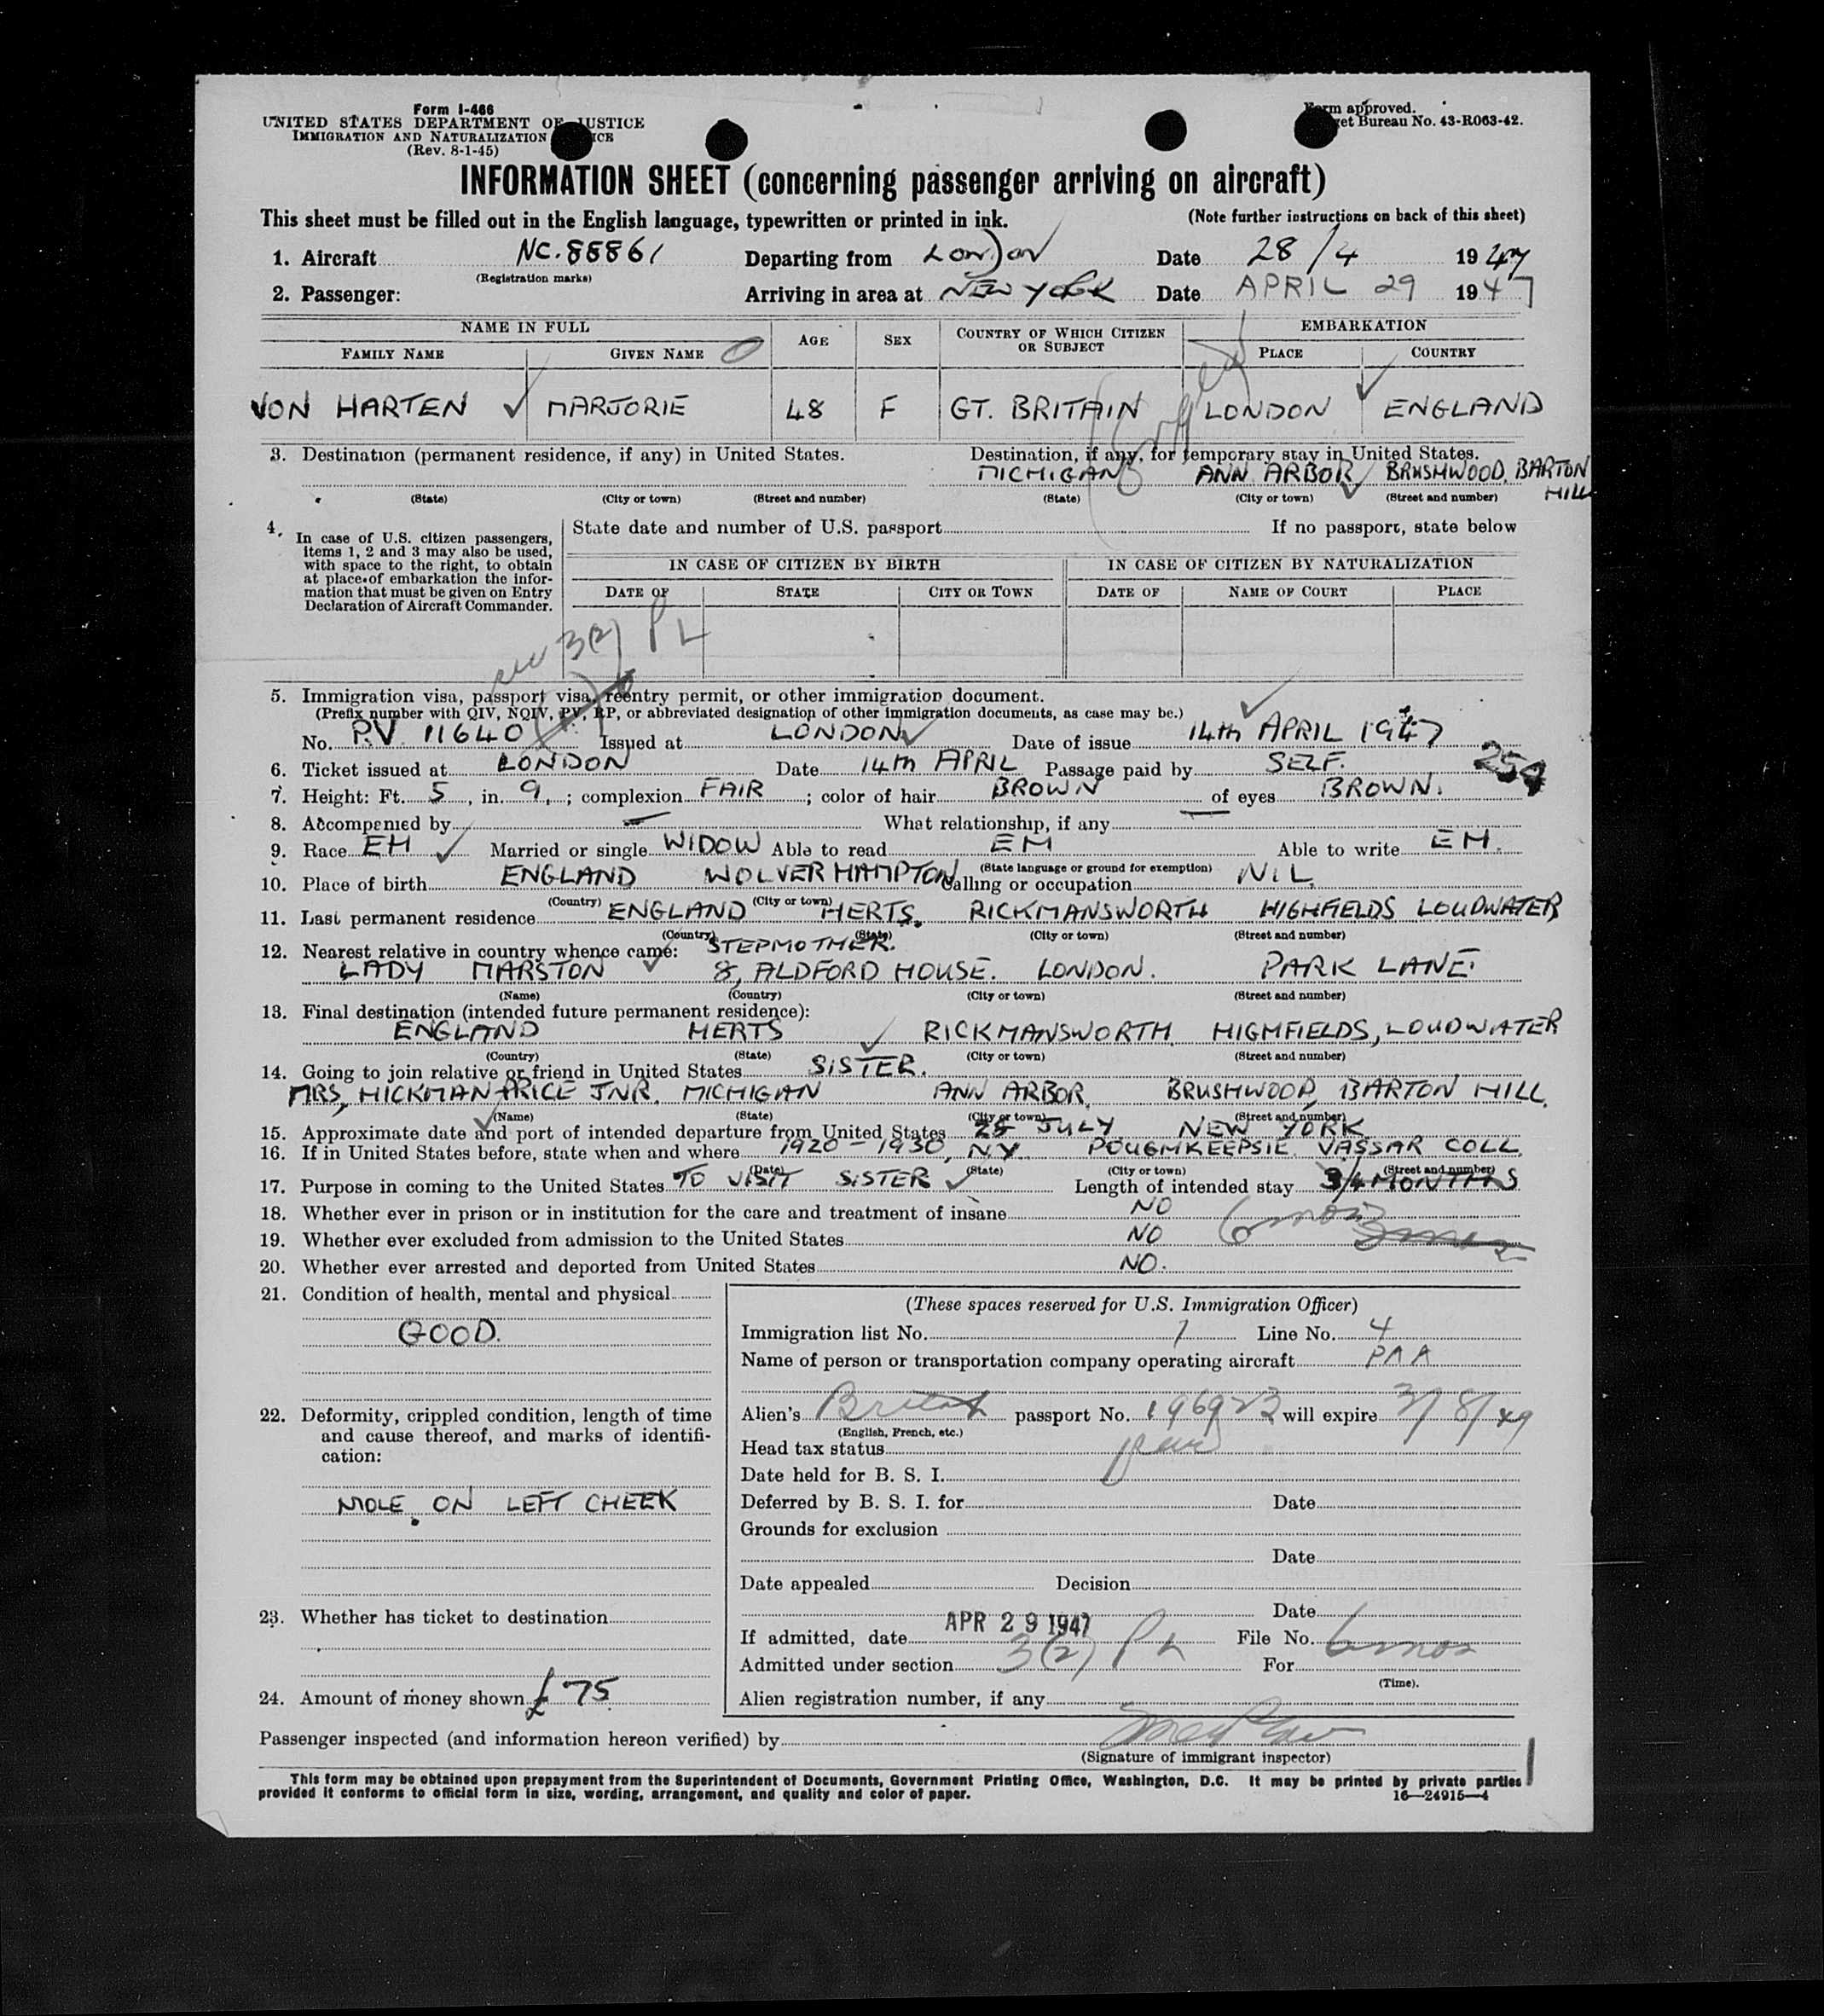 Form I-466
UNITED STATES DEPARTMENT OF JUSTICE
IMMIGRATION AND NATURALIZATION
(Rev. 8-1-45)
Form approved.
Bureau No. 43-R063-42.
INFORMATION SHEET (concerning passenger arriving on aircraft)
This sheet must be filled out in the English language, typewritten or printed in ink. (Note further instructions on back of this sheet)
1. Aircraft NC.88861 Departing from London Date 28/4 1947
(Registration marks)
2. Passenger: Arriving in area at NEW YORK Date APRIL 29 1947
NAME IN FULL AGE SEX COUNTRY OF WHICH CITIZEN OR SUBJECT EMBARKATION
FAMILY NAME GIVEN NAME PLACE COUNTRY
VON HARTEN MARJORIE 48 F GT. BRITAIN LONDON ENGLAND
3. Destination (permanent residence, if any) in United States. Destination, if any, for temporary stay in United States.
MICHIGAN ANN ARBOR BRUSHWOOD, BARTON HILL
(State) (City or town) (Street and number) (State) (City or town) (Street and number)
4. In case of U.S. citizen passengers, items 1, 2 and 3 may also be used, with space to the right, to obtain at place of embarkation the information that must be given on Entry Declaration of Aircraft Commander.
State date and number of U.S. passport If no passport, state below
IN CASE OF CITIZEN BY BIRTH IN CASE OF CITIZEN BY NATURALIZATION
DATE OF STATE CITY OR TOWN DATE OF NAME OF COURT PLACE
3(2) PL
5. Immigration visa, passport visa, reentry permit, or other immigration document.
(Prefix number with QIV, NQIV, PV, RP, or abbreviated designation of other immigration documents, as case may be.)
No. P.V. 11640 Issued at LONDON Date of issue 14th APRIL 1947
6. Ticket issued at LONDON Date 14th APRIL Passage paid by SELF. 254
7. Height: Ft. 5, in. 9,; complexion FAIR; color of hair BROWN of eyes BROWN.
8. Accompanied by — What relationship, if any —
9. Race EH Married or single WIDOW Able to read EM Able to write EM.
(State language or ground for exemption)
10. Place of birth ENGLAND WOLVERHAMPTON Calling or occupation NIL.
(Country) (City or town)
11. Last permanent residence ENGLAND HERTS. RICKMANSWORTH HIGHFIELDS LOUDWATER
(Country) (State) (City or town) (Street and number)
12. Nearest relative in country whence came: STEPMOTHER.
LADY MARSTON 8, ALDFORD HOUSE. LONDON. PARK LANE.
(Name) (Country) (City or town) (Street and number)
13. Final destination (intended future permanent residence):
ENGLAND HERTS RICKMANSWORTH HIGHFIELDS, LOUDWATER
(Country) (State) (City or town) (Street and number)
14. Going to join relative or friend in United States SISTER.
MRS, HICKMAN-PRICE JNR. MICHIGAN ANN ARBOR, BRUSHWOOD, BARTON HILL.
(Name) (State) (City or town) (Street and number)
15. Approximate date and port of intended departure from United States 25 JULY NEW YORK
16. If in United States before, state when and where 1920-1930, N.Y. POUGHKEEPSIE VASSAR COLL.
(Date) (State) (City or town) (Street and number)
17. Purpose in coming to the United States TO VISIT SISTER Length of intended stay 3/4 MONTHS
18. Whether ever in prison or in institution for the care and treatment of insane NO
6 mos
19. Whether ever excluded from admission to the United States NO
20. Whether ever arrested and deported from United States NO.
21. Condition of health, mental and physical
GOOD.
22. Deformity, crippled condition, length of time and cause thereof, and marks of identification:
MOLE ON LEFT CHEEK
23. Whether has ticket to destination
24. Amount of money shown £75
(These spaces reserved for U.S. Immigration Officer)
Immigration list No. 1 Line No. 4
Name of person or transportation company operating aircraft PAA
Alien's British passport No. 196923 will expire 3/8/49
(English, French, etc.)
Head tax status
Date held for B. S. I.
Deferred by B. S. I. for Date
Grounds for exclusion
Date
Date appealed Decision
Date
If admitted, date APR 29 1947 File No.
Admitted under section 3(2) PL For 6 mos
(Time).
Alien registration number, if any
Passenger inspected (and information hereon verified) by
(Signature of immigrant inspector)
This form may be obtained upon prepayment from the Superintendent of Documents, Government Printing Office, Washington, D.C. It may be printed by private parties
provided it conforms to official form in size, wording, arrangement, and quality and color of paper. 16—24915—4